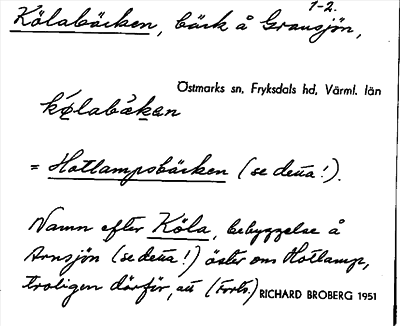 1-2.
Kölabäcken, bäck å Gransjön,
Östmarks sn, Fryksdals hd, Värml. län
kǿlabækən
= Hotlampsbäcken (se detta!).
Namn efter Köla, bebyggelse å
Arnsjön (se detta!) öster om Hotlamp,
troligen därför, att (Forts.)
RICHARD BROBERG 1951